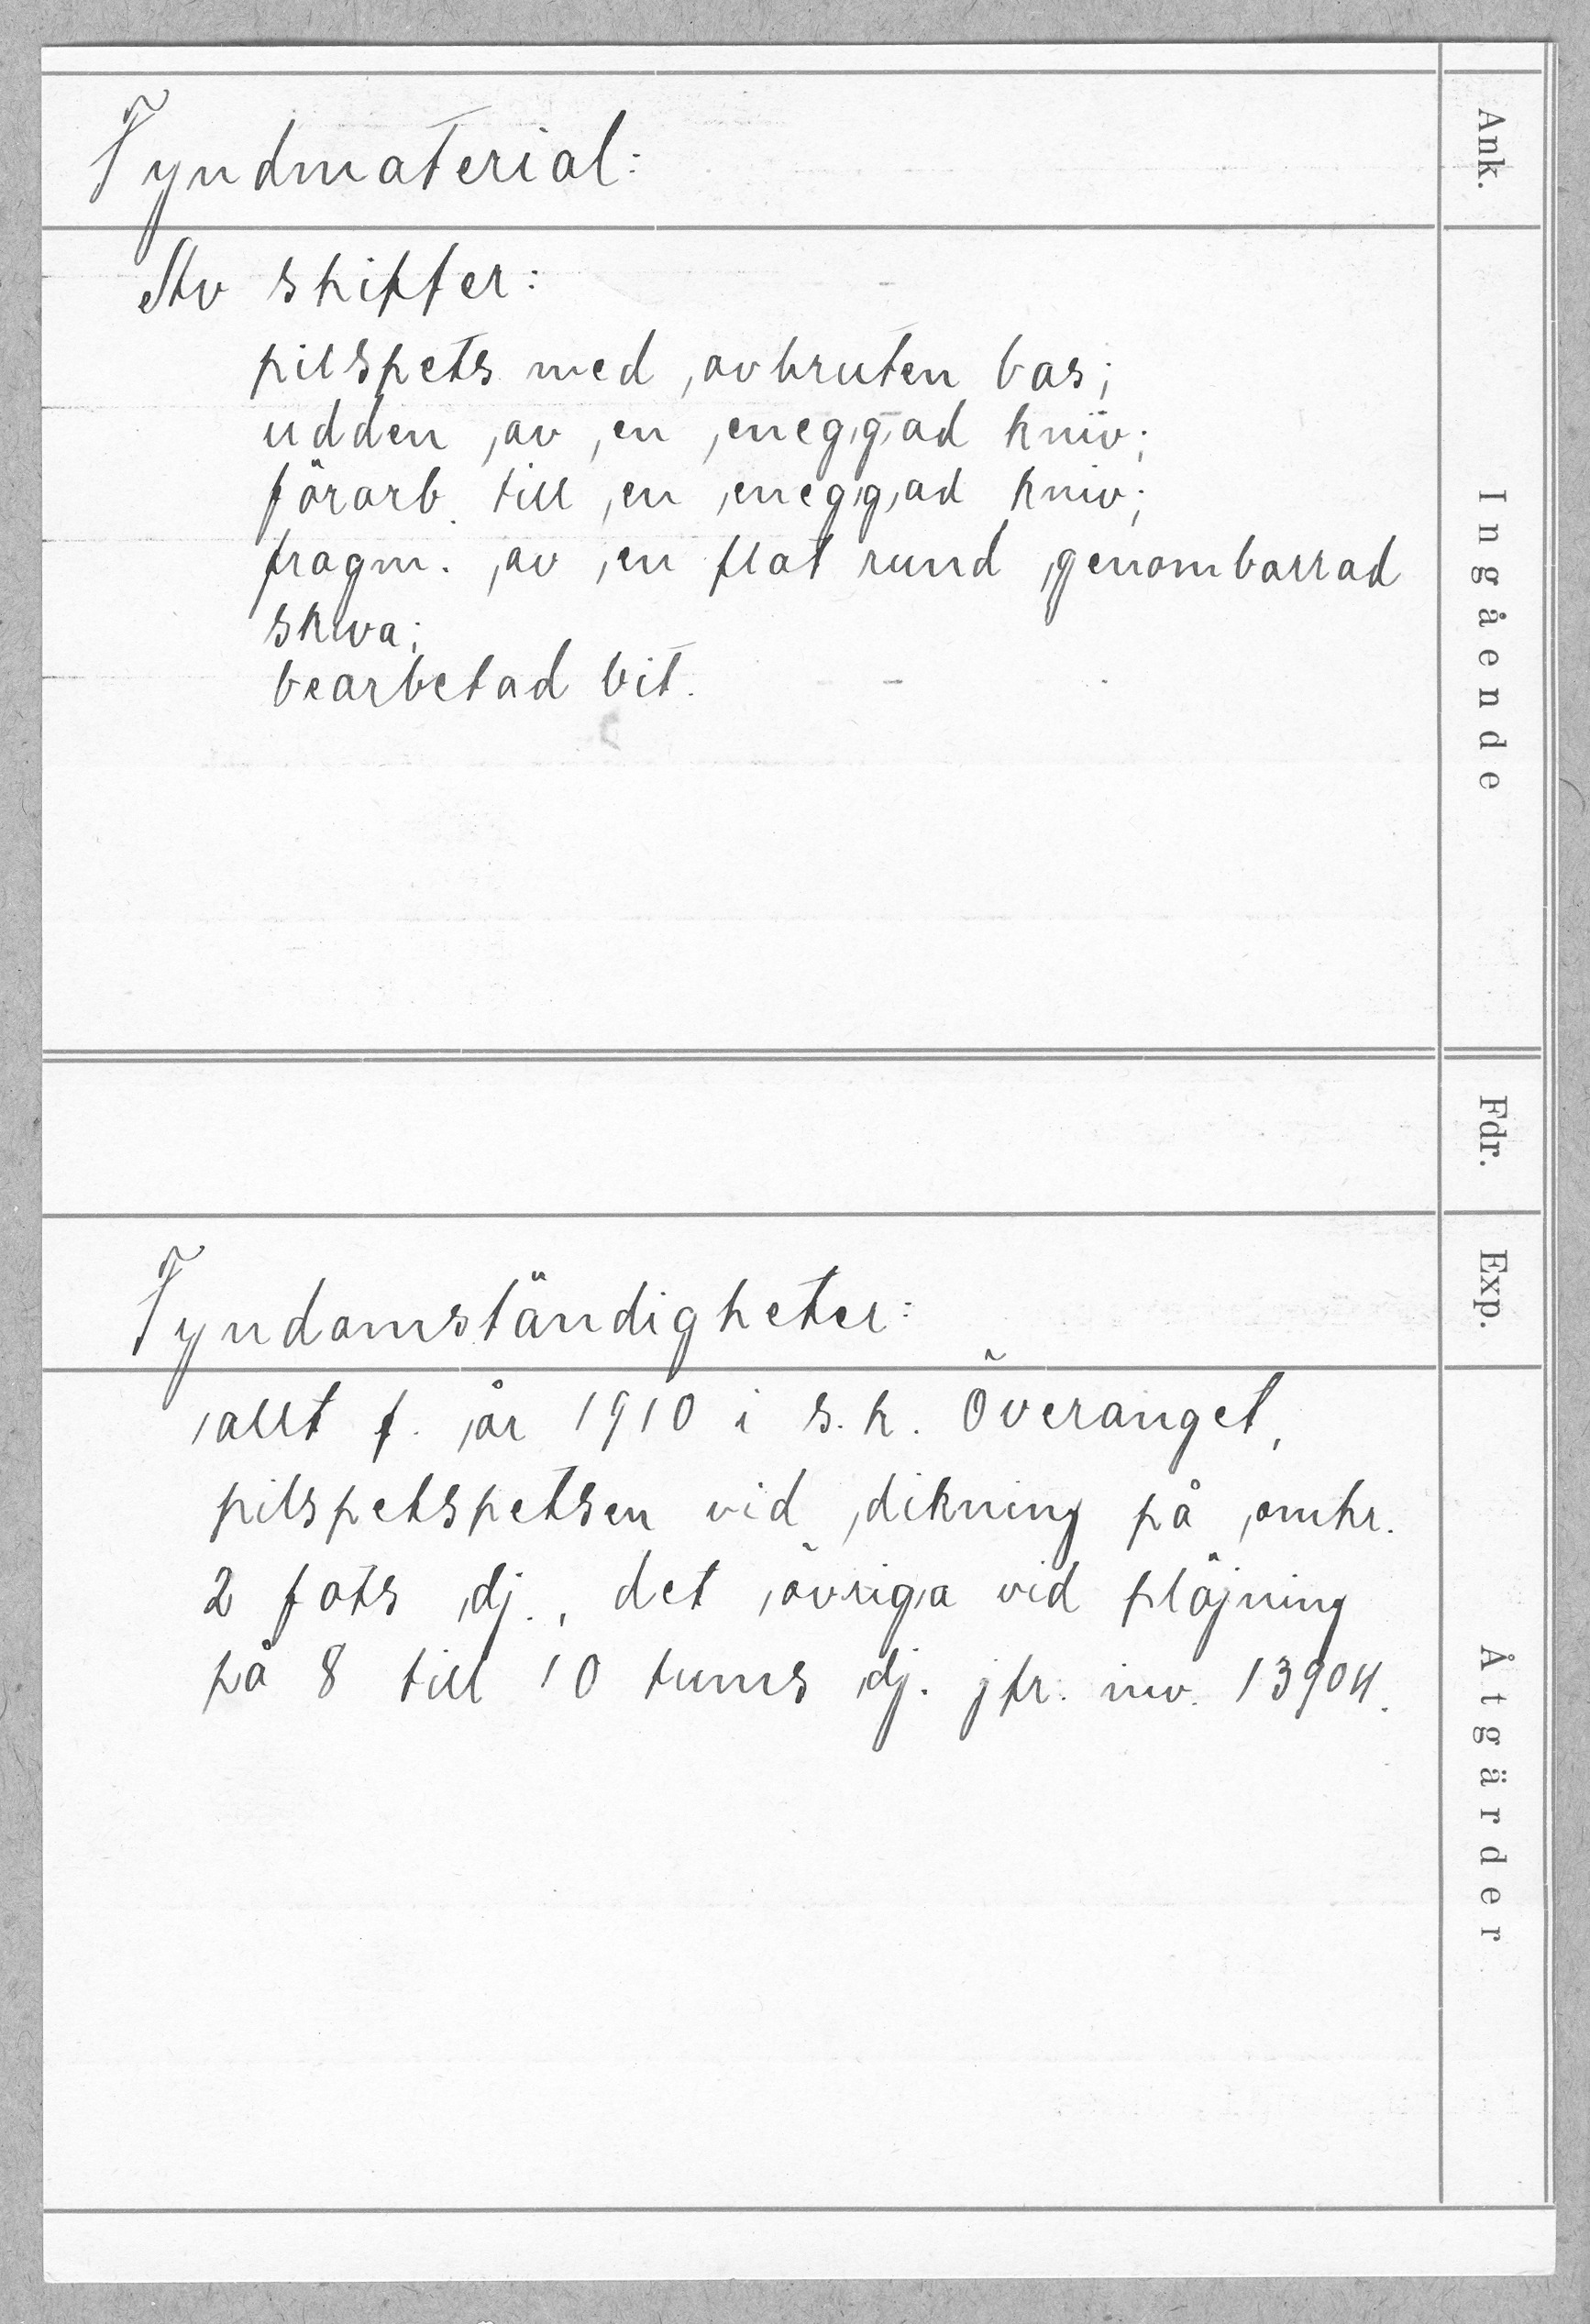 Fyndmaterial:
Av skiffer:
pilspets med avbruten bas;
udden av en eneggad kniv;
förarb. till en eneggad kniv;
fragm. av en flat rund genomborrad
skiva;
bearbetad bit.
Fyndomständigheter:
allt f. år 1910 i s.k. Överänget,
pilspetspetsen vid dikning på omkr.
2 fots dj., det övriga vid plöjning
på 8 till 10 tums dj. jfr. inv. 13904.
Ank.
Ingående
Fdr.
Exp.
Åtgärder